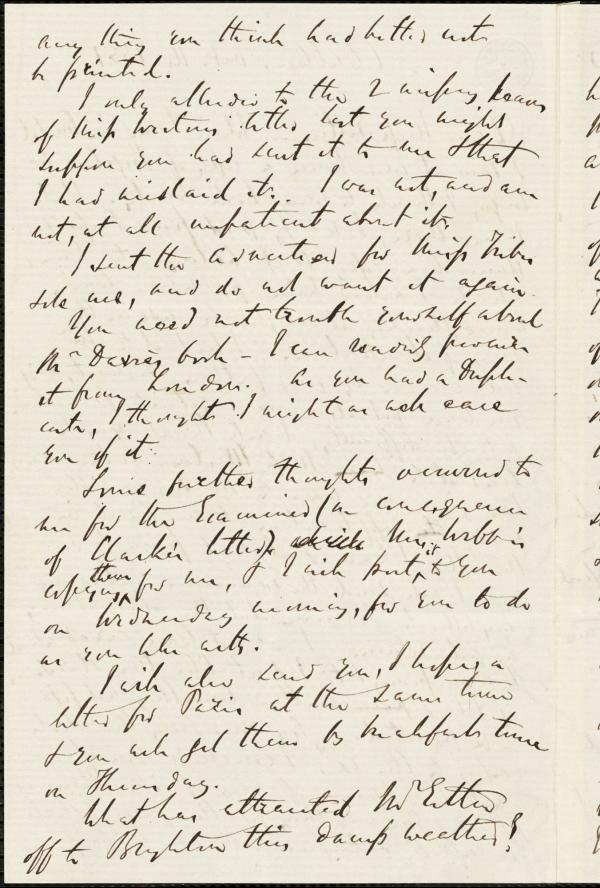 any thing you think had better not
be printed.
I only alluded to the 2 missing leaves
of Miss Weston's letter lest you might
suppose you had sent it to me & that
I had mislaid it. I was not, and am
not, at all impatient about it.
I sent the Advertiser for Miss
see me, and do not want it again.
You need not trouble yourself about
Mr Davis's book - I can readily procure
it from London. As you had a Dupli-
cate, I thought I might as ask ease
you of it.
Some further thoughts occurred to
me for the Examiner (in consequence
of Clark's letter) which Miss is
copying them for me, & I will post it to you
on Wednesday morning, for you to do
as you like with.
I will also send you, I hope, a
letter for Paris at the same time
& you will get them by breakfast time
on Thursday.
What has attracted Mr Estlin
off to Brighton this damp weather?